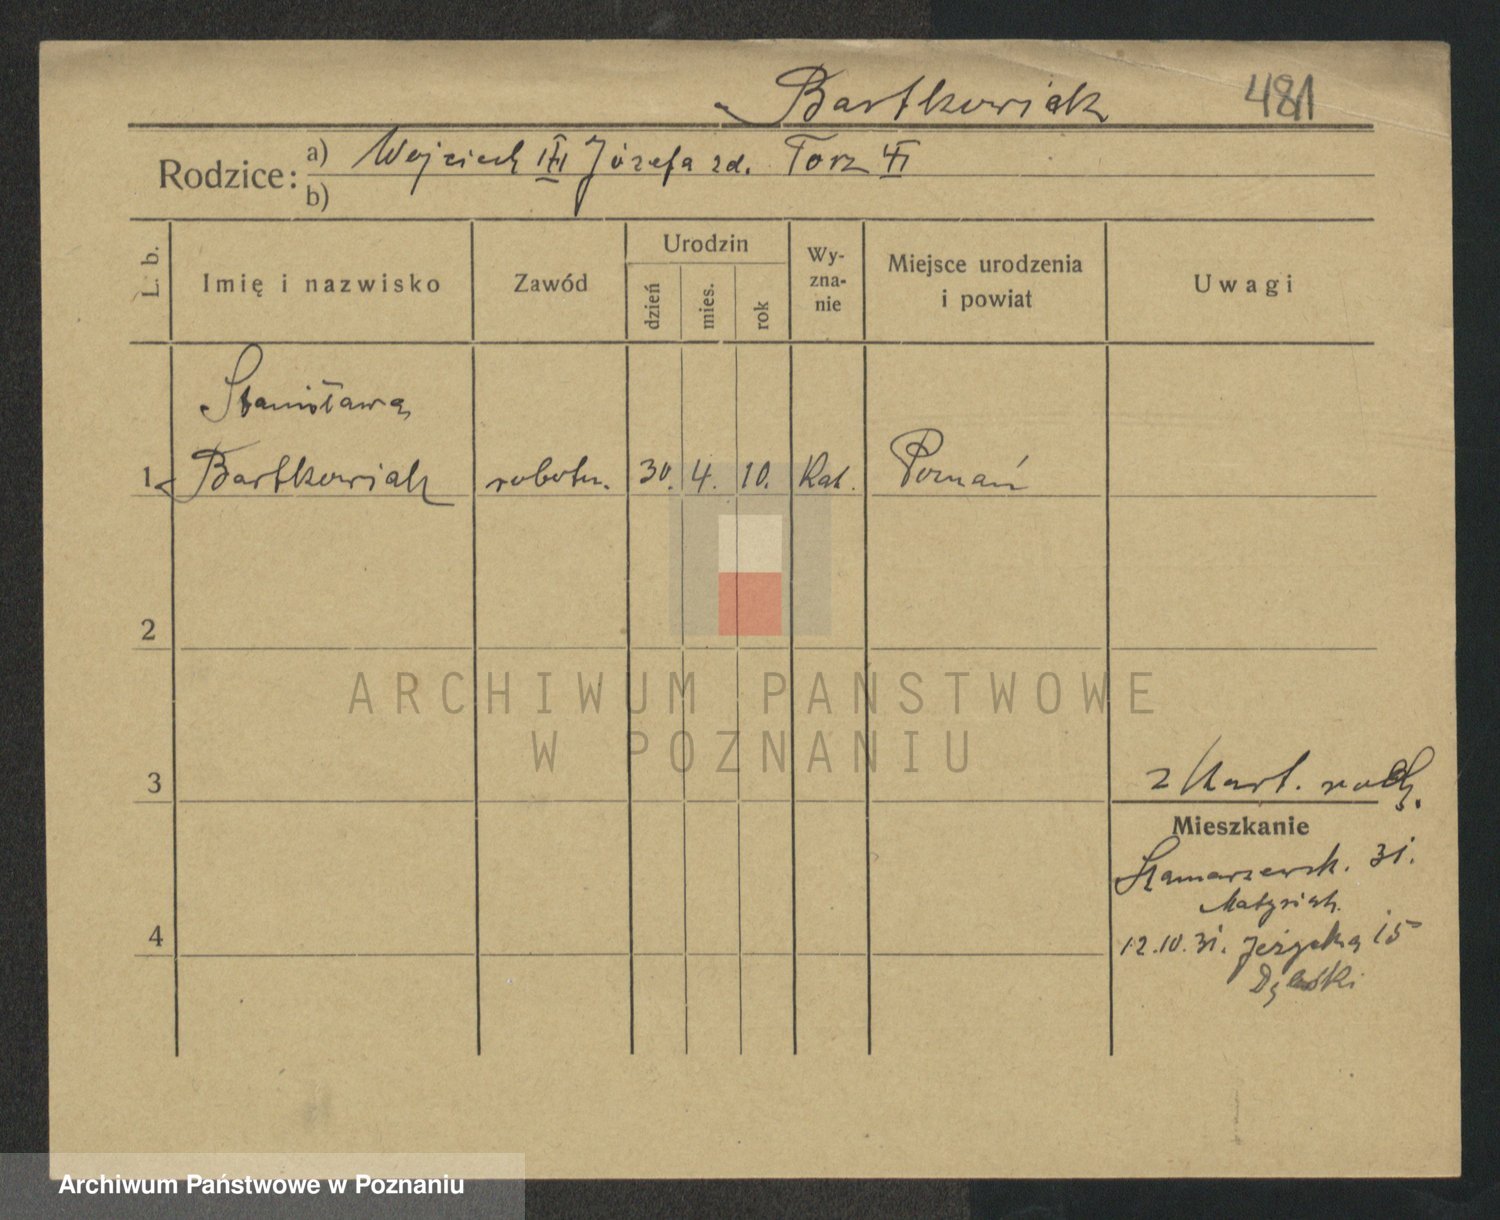 Bartkowiak 481
Rodzice: a) Wojciech Józefa zd. Torz
b)
L. b. Imię i nazwisko Zawód Urodzin dzień mies. rok Wyznanie Miejsce urodzenia i powiat Uwagi
Stanisława
1 Bartkowiak robotn. 30. 4. 10. Kat. Poznań
2
ARCHIWUM PAŃSTWOWE
W POZNANIU
z Kart. rodz.
3
Mieszkanie
Szamarzewsk. 31.
Matysiak
4 12.10.31. Jeżycka 15
Archiwum Państwowe w Poznaniu